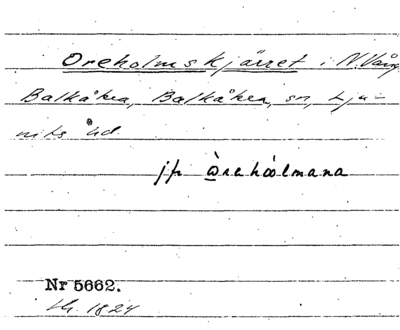 Oreholmskjärret i N. Vång
Balkåkra, Balkåkra, sn, Lju-
nits hd.
jfr òrehòolmana
Nr 5662.
1824